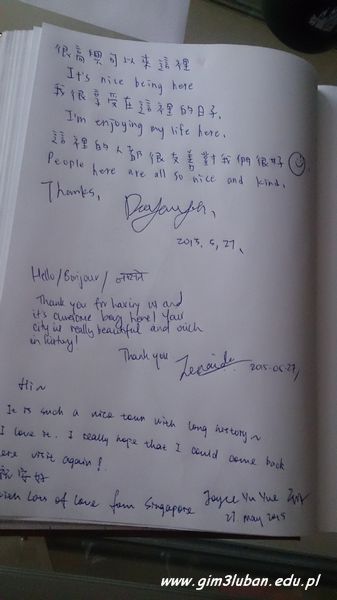 很高興可以來這裡
It's nice being here
我很享受在這裡的日子.
I'm enjoying my life here.
這裡的人都很友善對我們很好
People here are all so nice and kind.
Thanks,
2015. 5, 27.
Hello/Bonjour/नमस्ते
Thank you for having us and
it's awesome being here! Your
city is really beautiful and rich
in history!
Thank you
2015-05-27,
Hi~
It is such a nice town with long history~
I love it. I really hope that I could come back
here visit again!
with lots of love from Singapore Joyce Yu Yue
27 May 2015
www.gim3luban.edu.pl